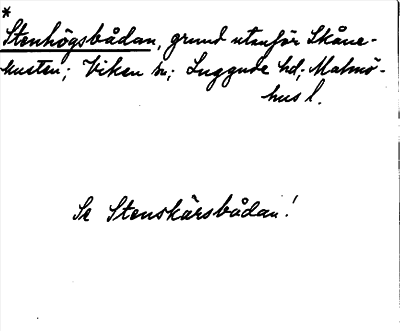 *
Stenhögsbådan, grund utanför Skåne-
kusten; Viken sn; Luggude hd; Malmö-
hus l.
Se Stenskärsbådan!